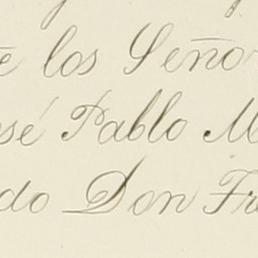 e los Seño
osé Pablo M
do Don Fra